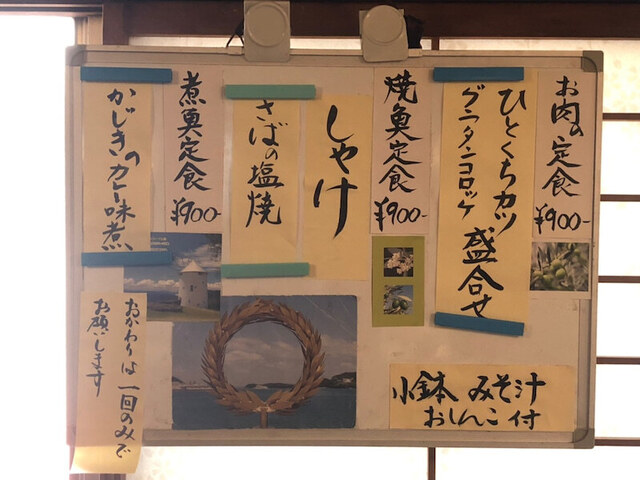 お肉の定食
¥900-
ひとくちカツ
グラタンコロッケ
盛合せ
焼魚定食
¥900-
しゃけ
さばの塩焼
煮魚定食
¥900-
かじきのカレー味煮
小鉢 みそ汁
おしんこ付
おかわりは一回のみで
お願いします